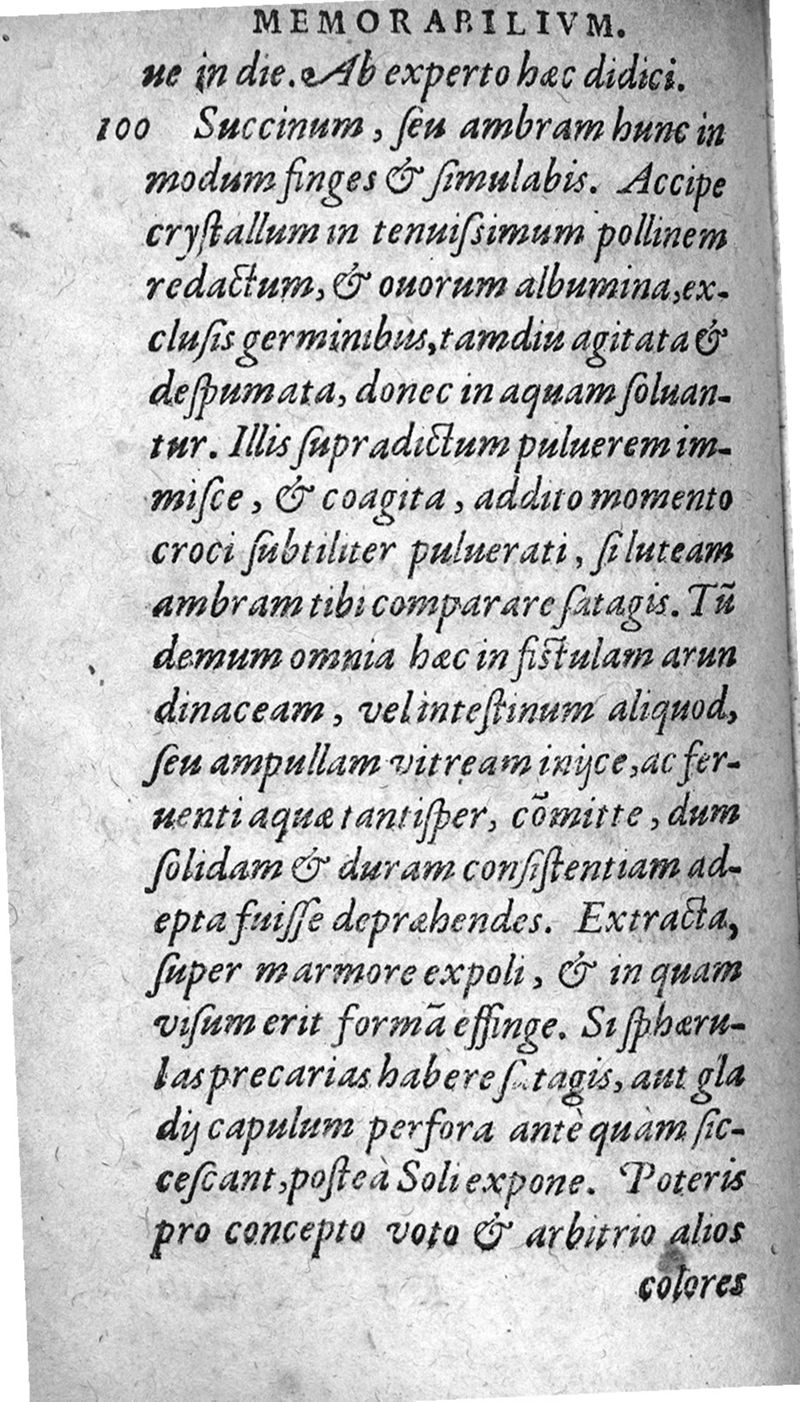 MEMORABILIVM.
ue in die. Ab experto hæc didici.
100 Succinum, ſeu ambram hunc in
modum finges & ſimulabis. Accipe
cryſtallum in tenuiſsimum pollinem
redactum, & ouorum albumina, ex-
cluſis germinibus, tamdiu agitata &
deſpumata, donec in aquam ſoluan-
tur. Illis ſupradictum puluerem im-
miſce, & coagita, addito momento
croci ſubtiliter puluerati, ſi luteam
ambram tibi comparare ſatagis. Tũ
demum omnia hæc in fistulam arun
dinaceam, vel inteſtinum aliquod,
ſeu ampullam vitream inijce, ac fer-
uenti aquæ tantiſper, cõmitte, dum
ſolidam & duram conſiſtentiam ad-
epta fuiſſe depræhendes. Extracta,
ſuper marmore expoli, & in quam
viſum erit formã effinge. Si ſphæru-
las precarias habere ſatagis, aut gla
dij capulum perfora antè quàm ſic-
ceſcant, poſteà Soli expone. Poteris
pro concepto voto & arbitrio alios
colores